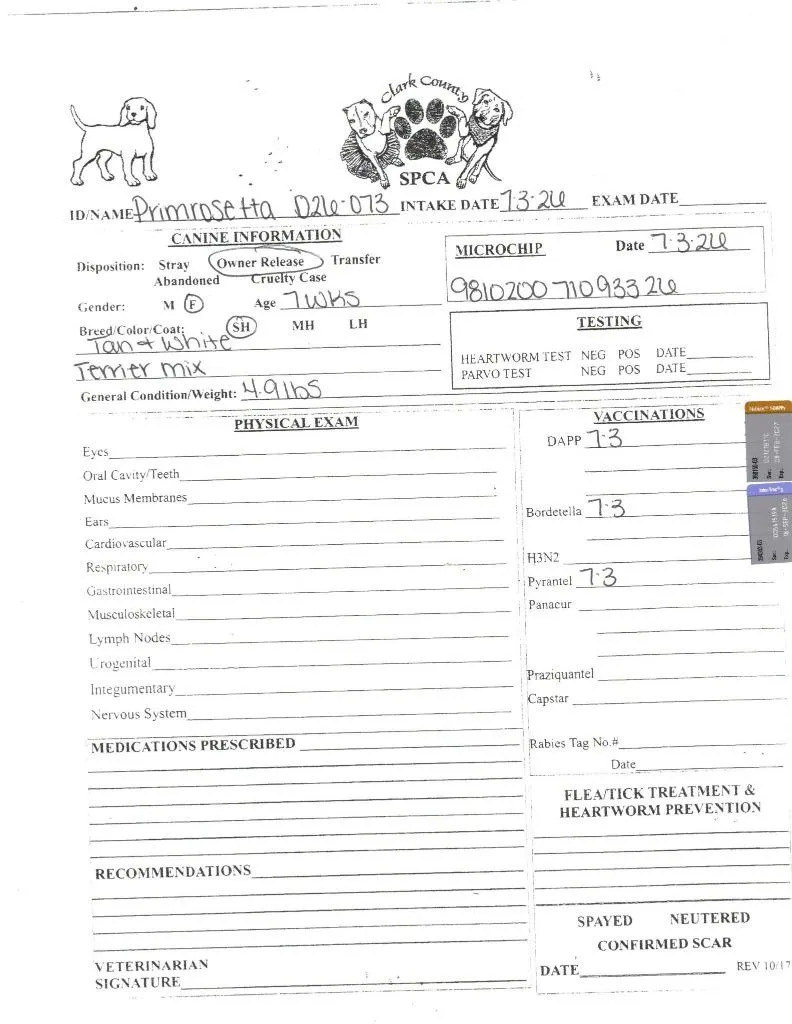 Clark County
SPCA
ID/NAME Primrosetta D26-073 INTAKE DATE 7-3-26 EXAM DATE
CANINE INFORMATION
Disposition: Stray Owner Release Transfer
Abandoned Cruelty Case
Gender: M F Age 7 wks
Breed/Color/Coat: SH MH LH
Tan + White
Terrier mix
General Condition/Weight: 4.9 lbs
MICROCHIP Date 7-3-26
981020071093326
TESTING
HEARTWORM TEST NEG POS DATE
PARVO TEST NEG POS DATE
PHYSICAL EXAM
Eyes
Oral Cavity/Teeth
Mucus Membranes
Ears
Cardiovascular
Respiratory
Gastrointestinal
Musculoskeletal
Lymph Nodes
Urogenital
Integumentary
Nervous System
MEDICATIONS PRESCRIBED
RECOMMENDATIONS
VETERINARIAN
SIGNATURE
VACCINATIONS
DAPP 7-3
Bordetella 7-3
H3N2
Pyrantel 7-3
Panacur
Praziquantel
Capstar
Rabies Tag No.#
Date
FLEA/TICK TREATMENT &
HEARTWORM PREVENTION
SPAYED NEUTERED
CONFIRMED SCAR
DATE
REV 10/17